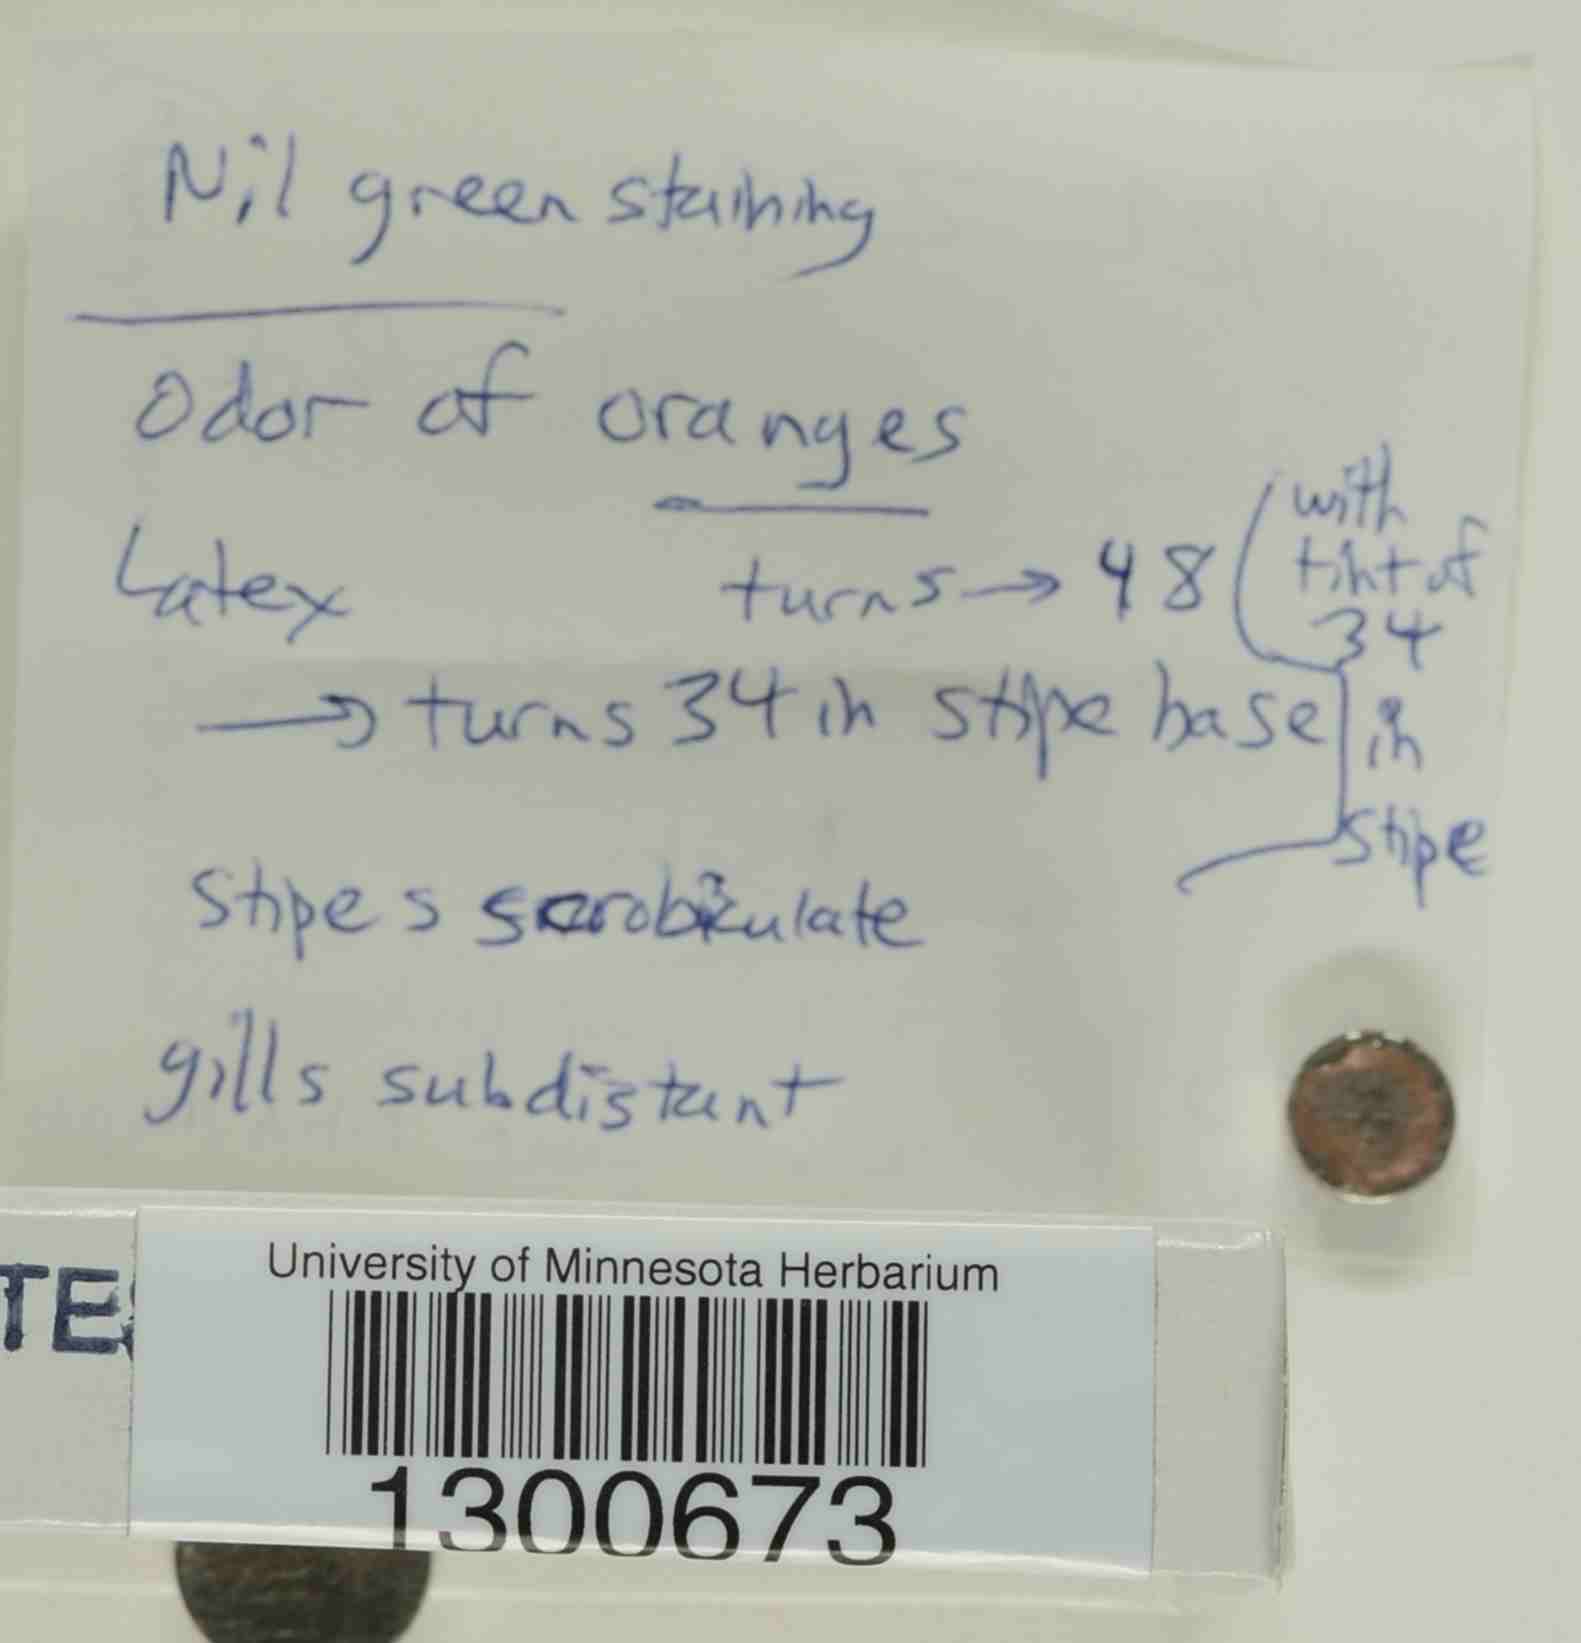 Nil green staining
Odor of oranges
Latex turns → 48 (with
tint of
34
→ turns 34 in stipe base in
stipe
Stipes scrobiculate
gills subdistant
TE
University of Minnesota Herbarium
1300673